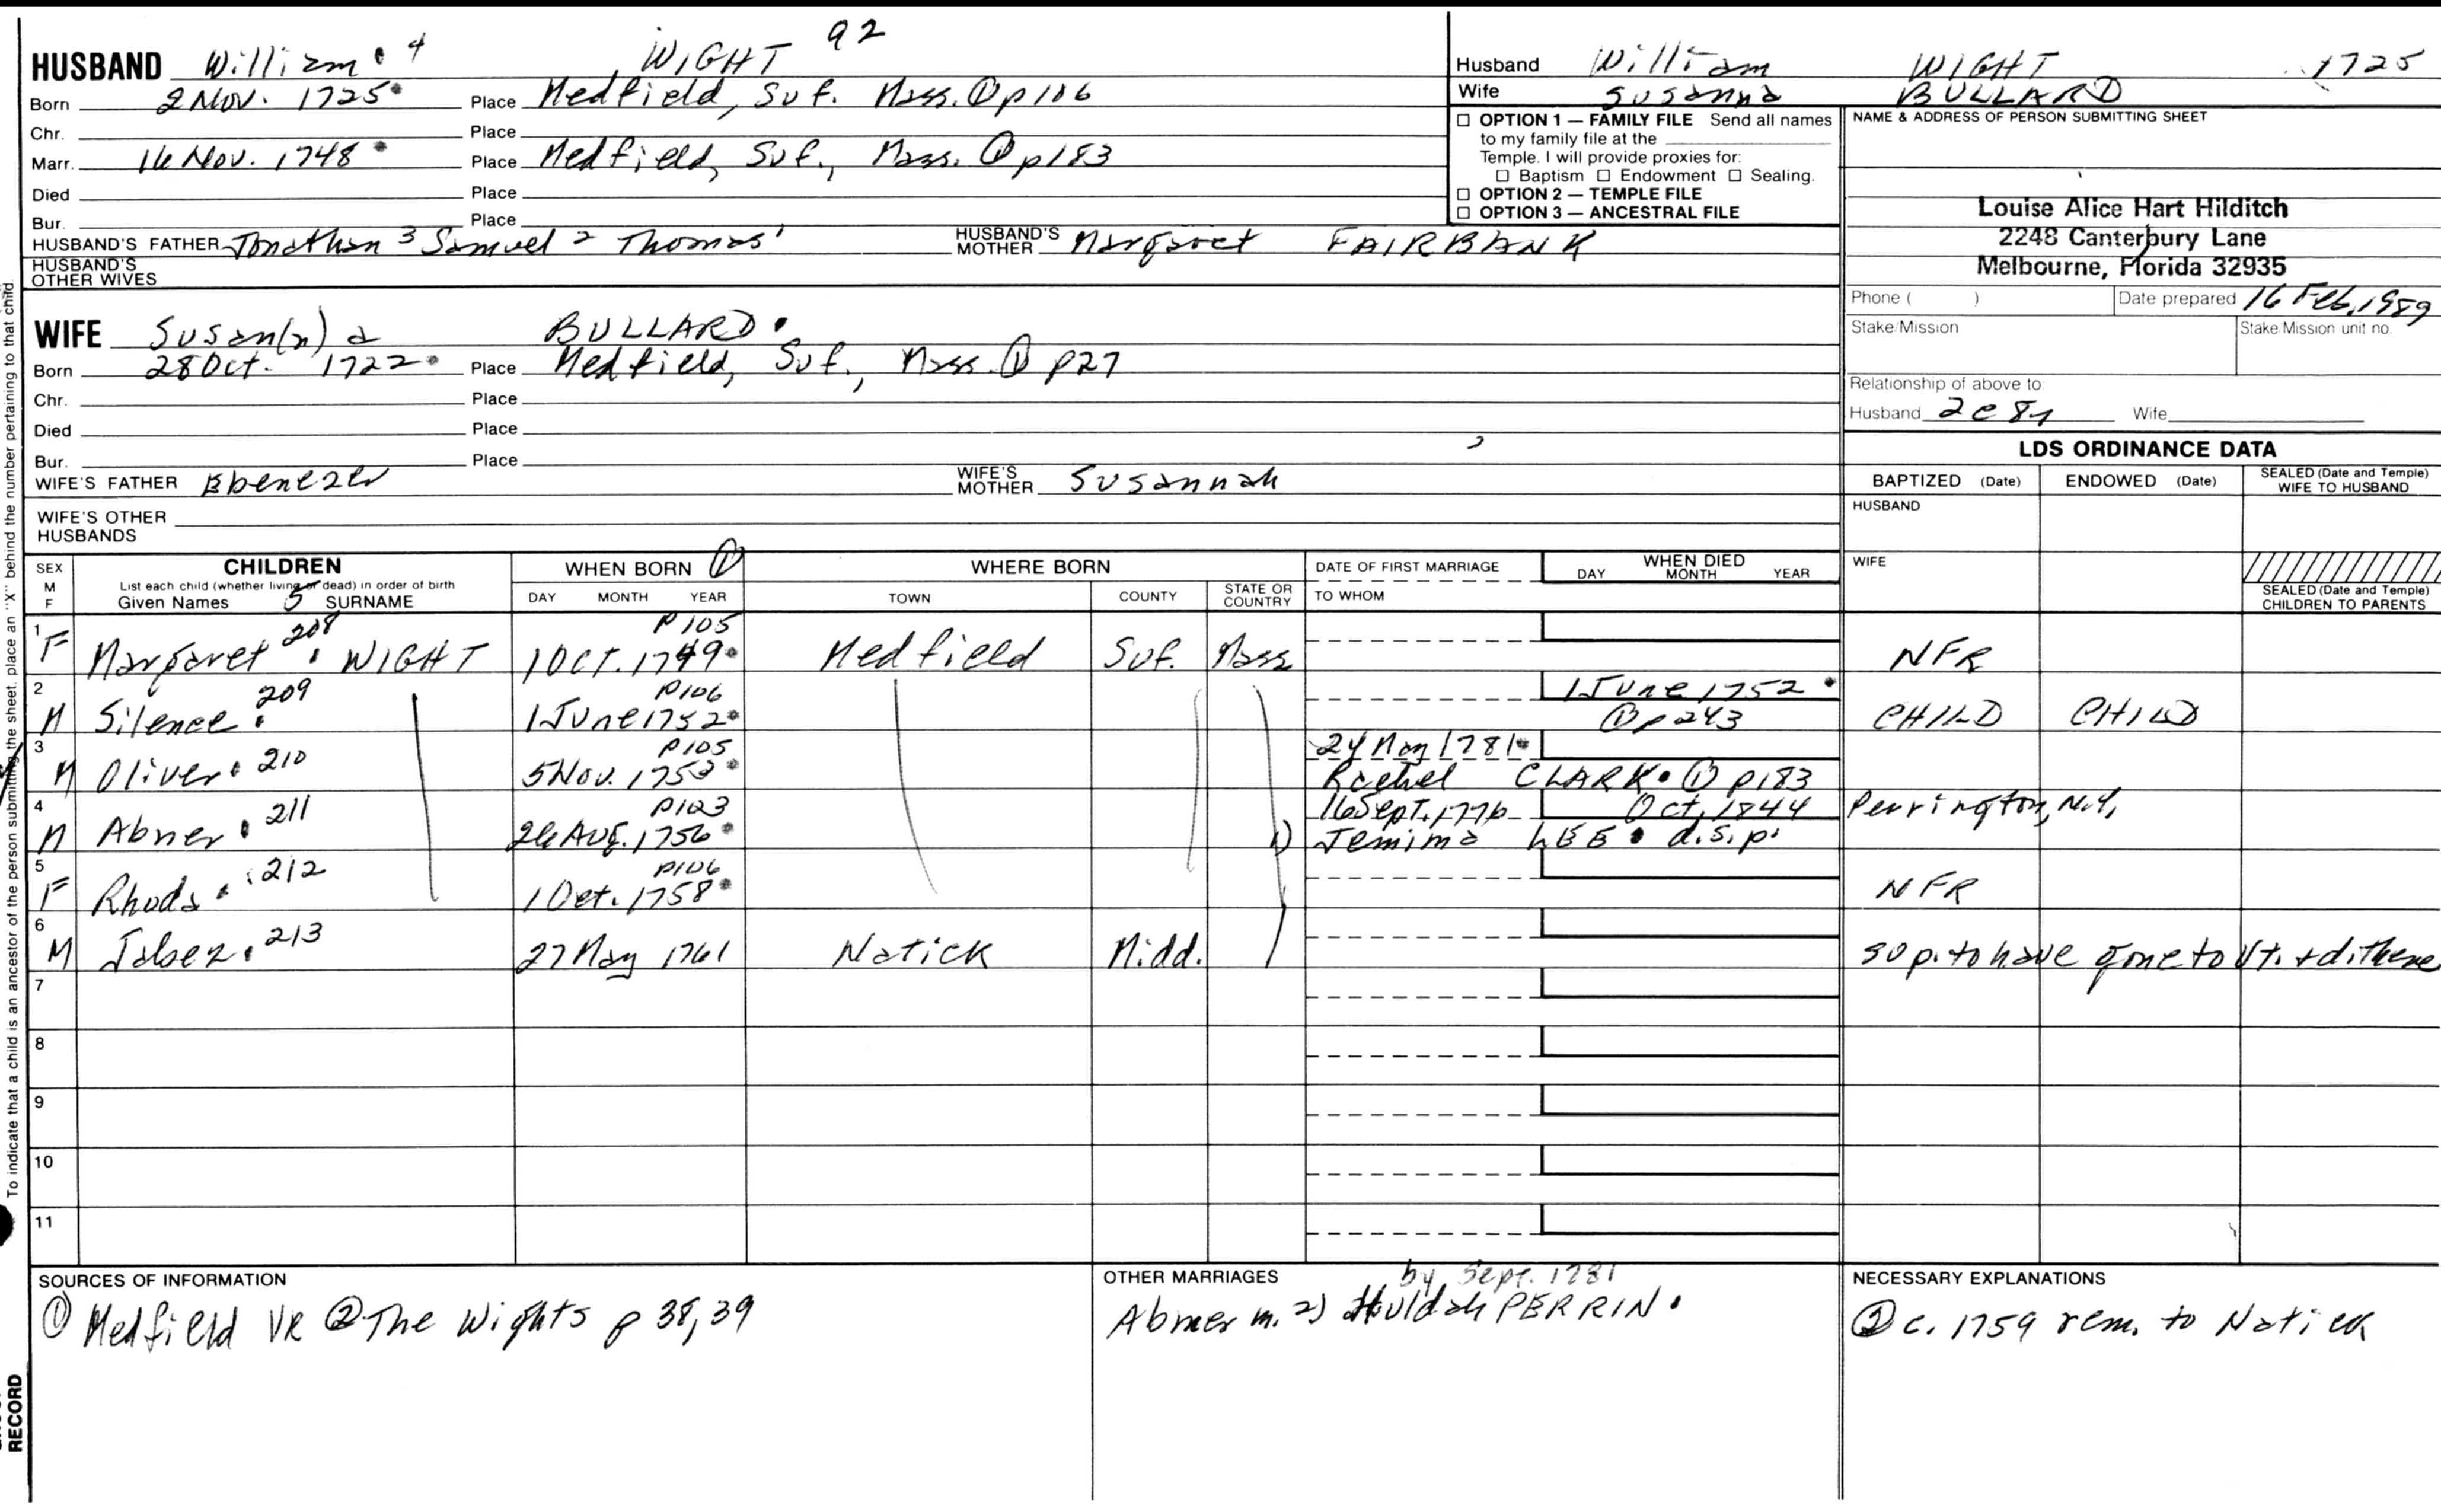 HUSBAND William 4 WIGHT 92
Born 2 Nov. 1725 Place Medfield, Suf. Mass. ① p106
Chr. Place
Marr. 16 Nov. 1748 Place Medfield, Suf., Mass. ① p183
Died Place
Bur. Place
HUSBAND'S FATHER Jonathan 3 Samuel 2 Thomas 1 HUSBAND'S MOTHER Margaret FAIRBANK
HUSBAND'S OTHER WIVES
WIFE Susan(n)a BULLARD
Born 28 Oct. 1722 Place Medfield, Suf., Mass. ① p27
Chr. Place
Died Place
Bur. Place
WIFE'S FATHER Ebenezer WIFE'S MOTHER Susannah
WIFE'S OTHER HUSBANDS
Husband William WIGHT 1725
Wife Susanna BULLARD
☐ OPTION 1 — FAMILY FILE Send all names
to my family file at the
Temple. I will provide proxies for:
☐ Baptism ☐ Endowment ☐ Sealing.
☐ OPTION 2 — TEMPLE FILE
☐ OPTION 3 — ANCESTRAL FILE
NAME & ADDRESS OF PERSON SUBMITTING SHEET
Louise Alice Hart Hilditch
2248 Canterbury Lane
Melbourne, Florida 32935
Phone ( ) Date prepared 16 Feb, 1989
Stake/Mission Stake/Mission unit no.
Relationship of above to
Husband Wife
LDS ORDINANCE DATA
BAPTIZED (Date) ENDOWED (Date) SEALED (Date and Temple) WIFE TO HUSBAND
HUSBAND
WIFE
SEALED (Date and Temple) CHILDREN TO PARENTS
SEX M F CHILDREN WHEN BORN ① WHERE BORN DATE OF FIRST MARRIAGE WHEN DIED
List each child (whether living or dead) in order of birth
Given Names 5 SURNAME DAY MONTH YEAR TOWN COUNTY STATE OR COUNTRY TO WHOM DAY MONTH YEAR
1 F Margaret 208 WIGHT p105 1 Oct. 1749 Medfield Suf. Mass NFR
2 M Silence 209 p106 1 June 1752 1 June 1752 ① p243 CHILD CHILD
3 M Oliver 210 p105 5 Nov. 1753 24 May 1781 Rachel CLARK ① p183
4 M Abner 211 p103 26 Aug. 1756 16 Sept. 1776 Oct, 1844 Perrington, N.Y.
1) Jemima LEE d.s.p.
5 F Rhoda 212 p106 1 Oct. 1758 NFR
6 M Jabez 213 27 May 1761 Natick Midd. sup. to have gone to Vt. + d. there
7
8
9
10
11
SOURCES OF INFORMATION
① Medfield VR ② The Wights p 38, 39
OTHER MARRIAGES
by Sept. 1781
Abner m. 2) Huldah PERRIN
NECESSARY EXPLANATIONS
② c. 1759 rem. to Natick
To indicate that a child is an ancestor of the person submitting the sheet, place an "X" behind the number pertaining to that child.
RECORD